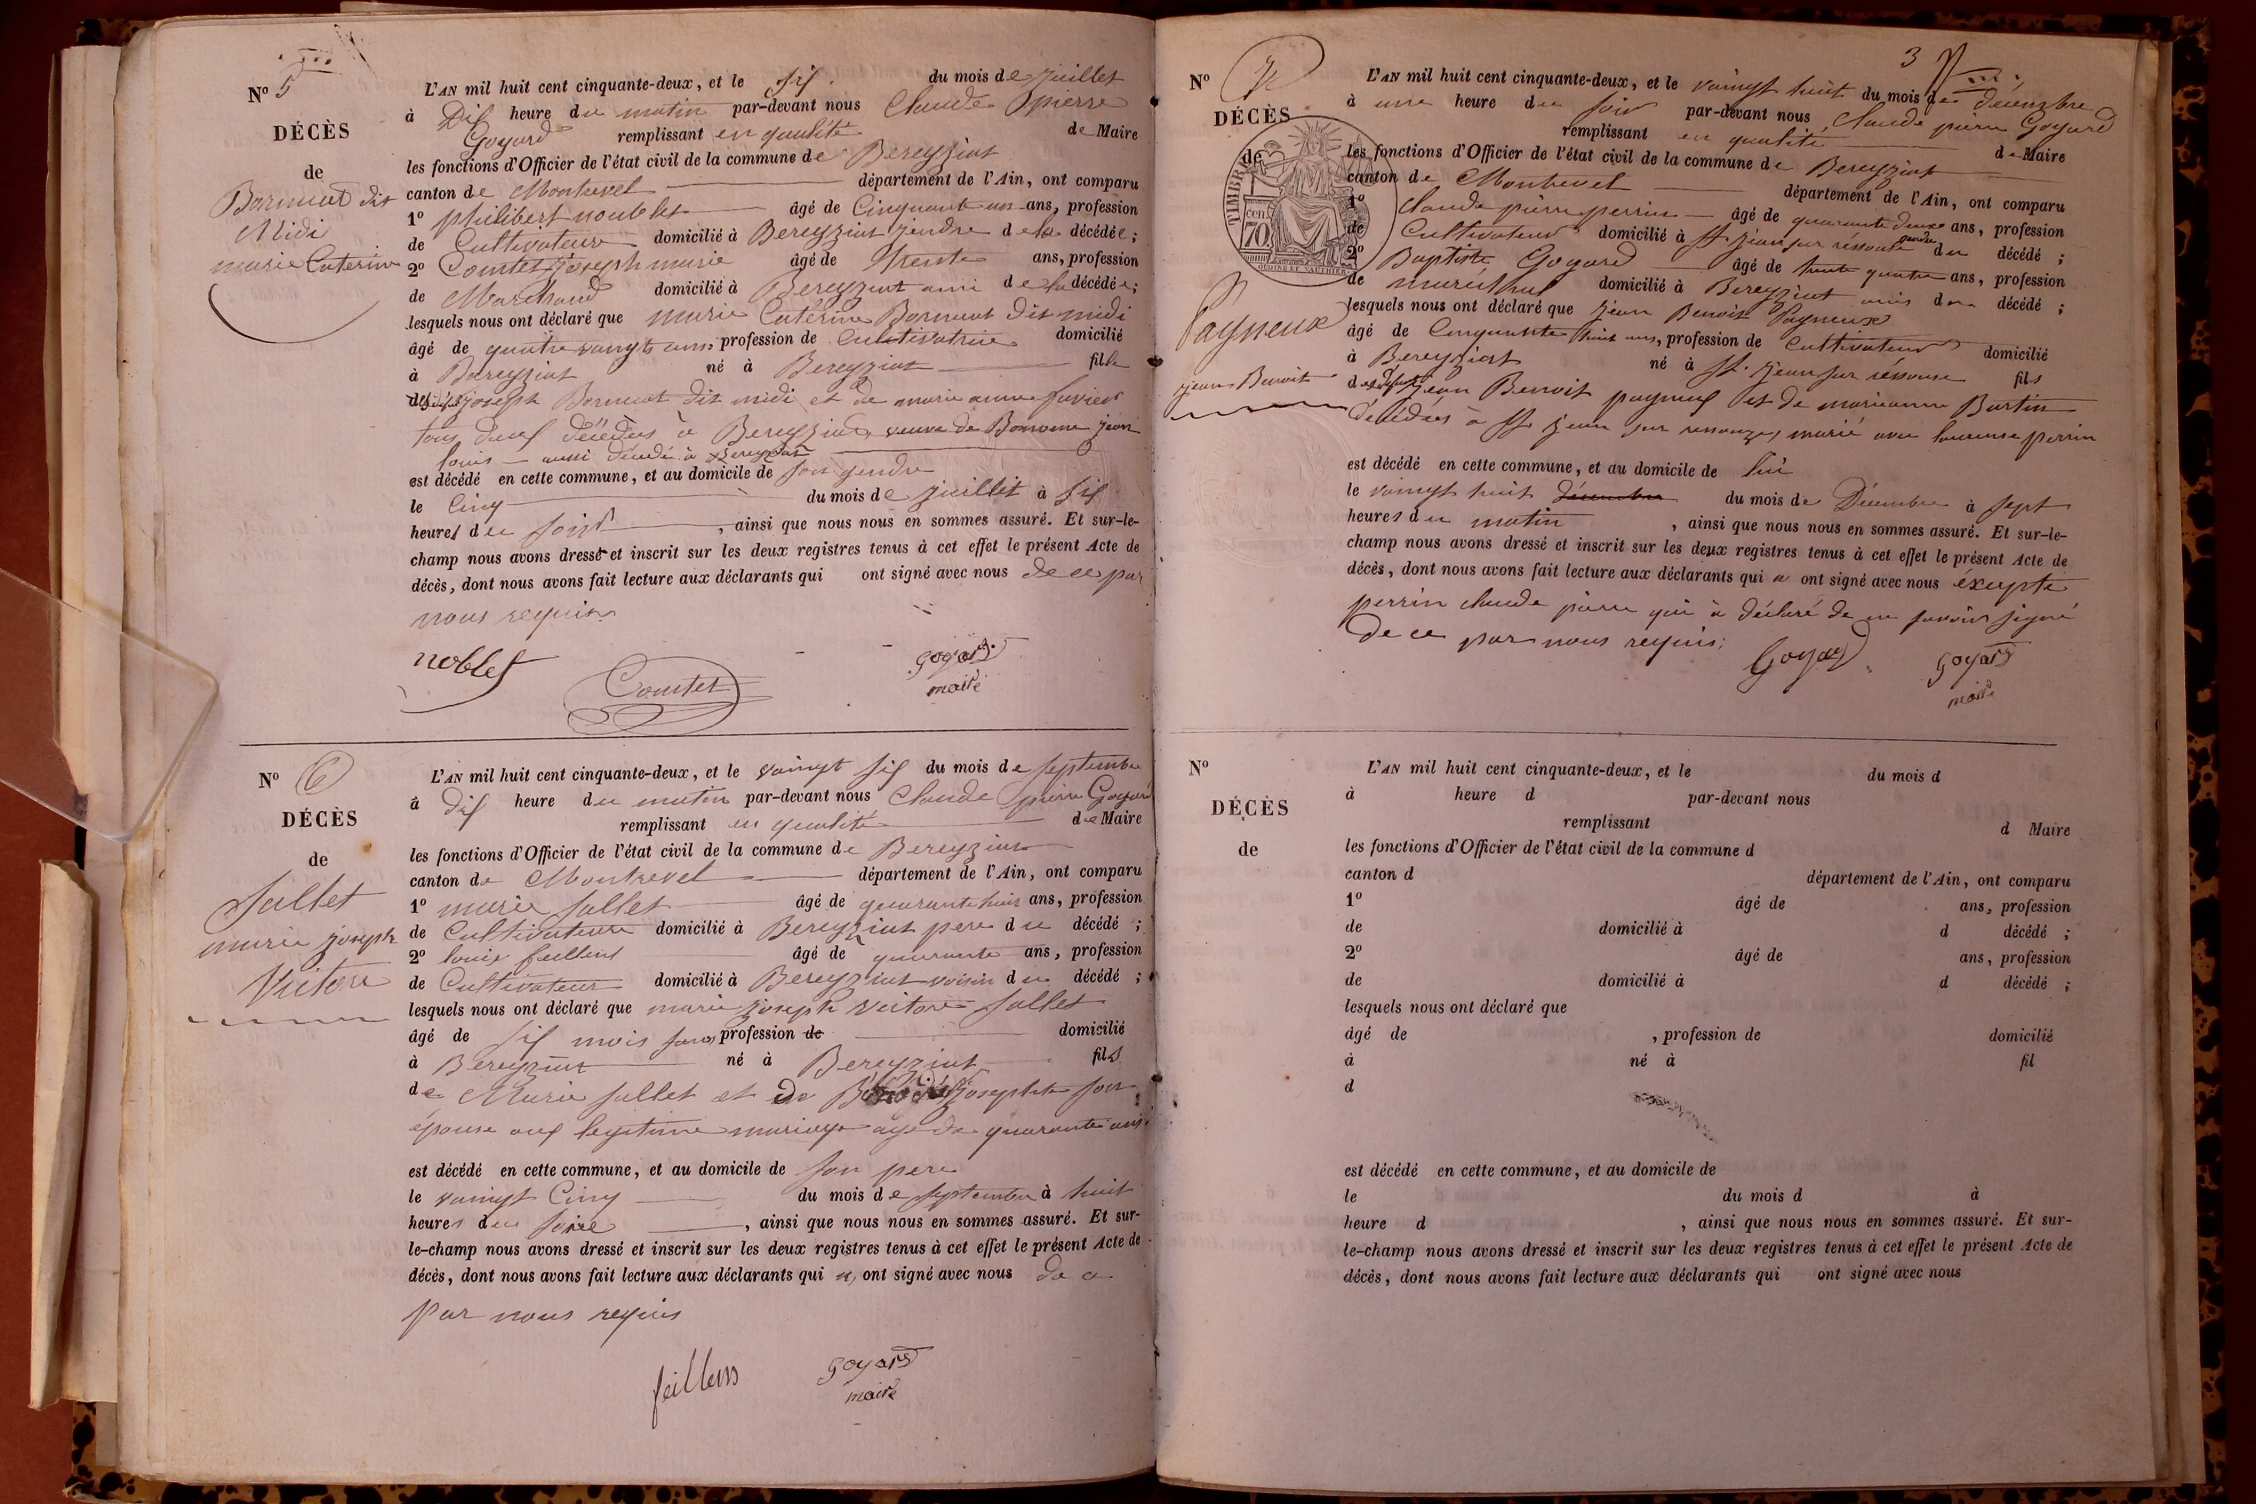 N° 5
DÉCÈS
de
Bornuat dit
Midi
marie Caterine
L'AN mil huit cent cinquante-deux, et le six du mois de juillet
à Dix heure du matin par-devant nous Claude pierre
Goyard remplissant en qualité de Maire
les fonctions d'Officier de l'état civil de la commune de Bereyziat
canton de Montrevel département de l'Ain, ont comparu
1° philibert noublet âgé de Cinquante un ans, profession
de Cultivateur domicilié à Bereyziat gendre de la décédée ;
2° Comtet joseph marie âgé de Trente ans, profession
de Marchand domicilié à Bereyziat ami de la décédée ;
lesquels nous ont déclaré que marie Caterine Bornuat dit midi
âgé de quatre vaingts ans, profession de Cultivatrice domicilié
à Bereyziat né à Bereyziat fille
de joseph Bornuat dit midi et de marie anne favier
tous deux décédés à Bereyziat, veuve de jean
louis aussi décédé à Bereyziat
est décédé en cette commune, et au domicile de son gendre
le Cinq du mois de juillet à six
heures du soir, ainsi que nous nous en sommes assuré. Et sur-le-
champ nous avons dressé et inscrit sur les deux registres tenus à cet effet le présent Acte de
décès, dont nous avons fait lecture aux déclarants qui ont signé avec nous de ce par
nous requis
noblet
Comtet
goyard
maire
N° 6
DÉCÈS
de
Sallet
marie joseph
Victore
L'AN mil huit cent cinquante-deux, et le vaingt six du mois de septembre
à dix heure du matin par-devant nous Claude pierre Goyard
remplissant en qualité de Maire
les fonctions d'Officier de l'état civil de la commune de Bereyziat
canton de Montrevel département de l'Ain, ont comparu
1° marie Sallet âgé de quarante huit ans, profession
de Cultivateur domicilié à Bereyziat pere du décédé ;
2° louis feillens âgé de quarante ans, profession
de Cultivateur domicilié à Bereyziat voisin du décédé ;
lesquels nous ont déclaré que marie joseph victore Sallet
âgé de six mois sans profession de domicilié
à Bereyziat né à Bereyziat fils
de Marie Sallet et de josephte son
épouse aux legitime mariage agé de quarante ans
est décédé en cette commune, et au domicile de son pere
le vaingt Cinq du mois de septembre à huit
heures du soire, ainsi que nous nous en sommes assuré. Et sur-
le-champ nous avons dressé et inscrit sur les deux registres tenus à cet effet le présent Acte de
décès, dont nous avons fait lecture aux déclarants qui ont signé avec nous de ce
par nous requis
feillens
goyard
maire
3
N° 7
DÉCÈS
de
TIMBRE
cen. 70
Payneux
jean Benoit
L'AN mil huit cent cinquante-deux, et le vaingt huit du mois de décembre
à une heure du soir par-devant nous Claude pierre Goyard
remplissant en qualité de Maire
les fonctions d'Officier de l'état civil de la commune de Bereyziat
canton de Montrevel département de l'Ain, ont comparu
1° Claude pierre perrin âgé de quarante deux ans, profession
de Cultivateur domicilié à St. jean sur réssouse du décédé ;
2° Baptiste Goyard âgé de trente quatre ans, profession
de maréchal domicilié à Bereyziat amis du décédé ;
lesquels nous ont déclaré que jean Benoit Payneux
âgé de Cinquante huit ans, profession de Cultivateur domicilié
à Bereyziat né à St. jean sur ressouse fils
de jean Benoit payneux et de marieanne Bartin
décédés à St jean sur ressouze, marié avec laurense perrin
est décédé en cette commune, et au domicile de lui
le vaingt huit décembre du mois de Décembre à sept
heures du matin, ainsi que nous nous en sommes assuré. Et sur-le-
champ nous avons dressé et inscrit sur les deux registres tenus à cet effet le présent Acte de
décès, dont nous avons fait lecture aux déclarants qui ont signé avec nous éxepté
perrin claude pierre qui à déclaré de ne savoir signé
de ce par nous requis.
Goyard
goyard
maire
N°
DÉCÈS
de
L'AN mil huit cent cinquante-deux, et le du mois d
à heure d par-devant nous
remplissant d Maire
les fonctions d'Officier de l'état civil de la commune d
canton d département de l'Ain, ont comparu
1° âgé de ans, profession
de domicilié à d décédé ;
2° âgé de ans, profession
de domicilié à d décédé ;
lesquels nous ont déclaré que
âgé de , profession de domicilié
à né à fil
d
est décédé en cette commune, et au domicile de
le du mois d à
heure d , ainsi que nous nous en sommes assuré. Et sur-
le-champ nous avons dressé et inscrit sur les deux registres tenus à cet effet le présent Acte de
décès, dont nous avons fait lecture aux déclarants qui ont signé avec nous